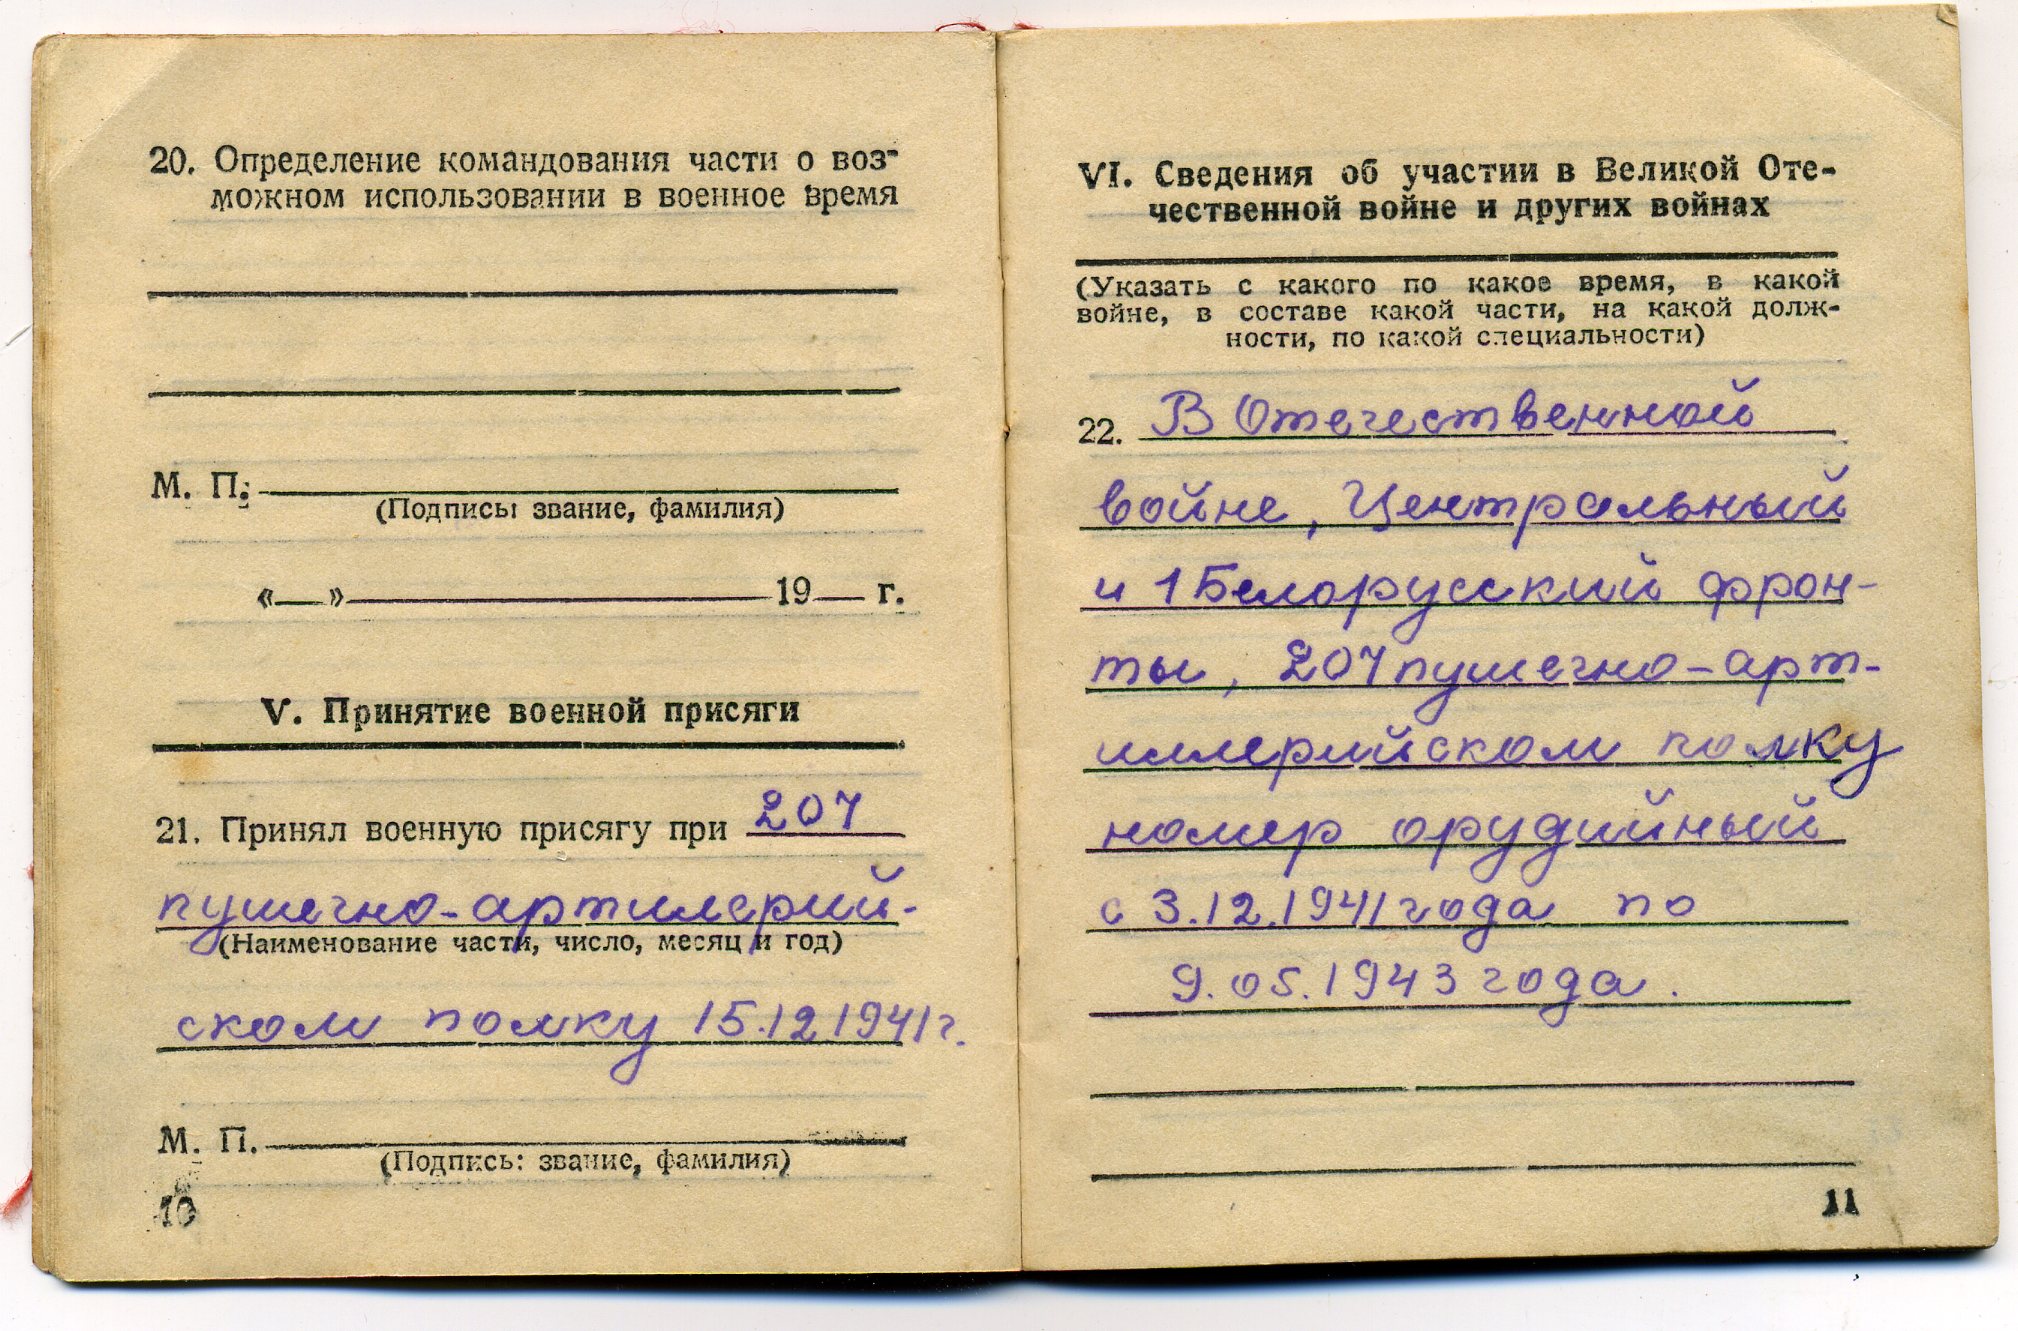 20. Определение командования части о воз-
можном использовании в военное время
М. П.
(Подпись: звание, фамилия)
«__» 19__ г.
V. Принятие военной присяги
21. Принял военную присягу при 207
пушечно-артилерий-
(Наименование части, число, месяц и год)
ском полку 15.12 1941 г.
М. П.
(Подпись: звание, фамилия)
10
VI. Сведения об участии в Великой Оте-
чественной войне и других войнах
(Указать с какого по какое время, в какой
войне, в составе какой части, на какой долж-
ности, по какой специальности)
22. В Отечественной
войне, Центральный
и 1 Белорусский фрон-
ты, 207 пушечно-арт-
иллерийском полку
номер орудийный
с 3.12.1941 года по
9.05.1943 года.
11